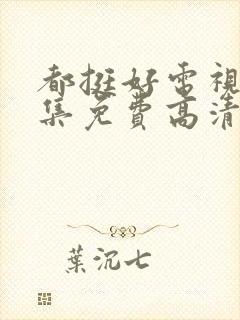 都挺好電視
集免費高清
葉沉七